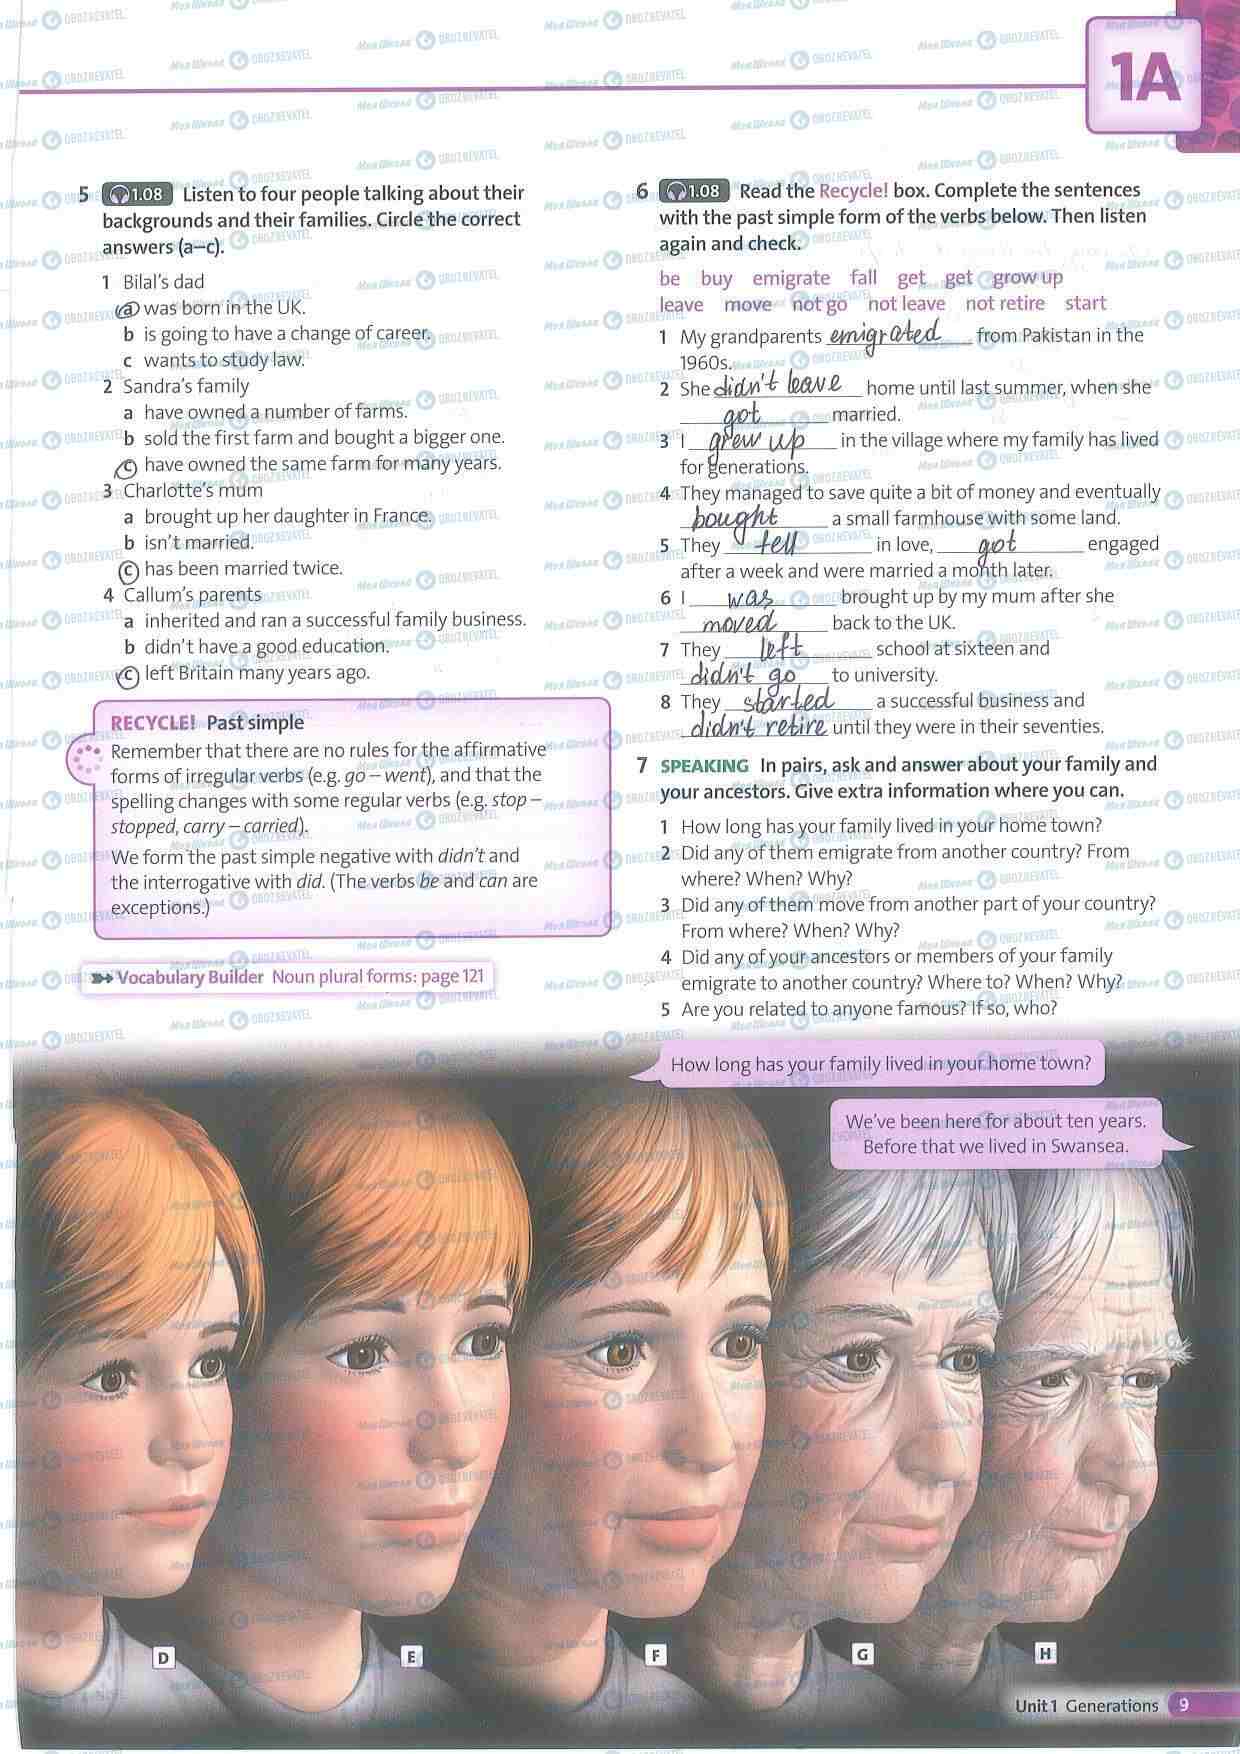 1A
5 1.08 Listen to four people talking about their
backgrounds and their families. Circle the correct
answers (a–c).
1 Bilal's dad
a was born in the UK.
b is going to have a change of career.
c wants to study law.
2 Sandra's family
a have owned a number of farms.
b sold the first farm and bought a bigger one.
c have owned the same farm for many years.
3 Charlotte's mum
a brought up her daughter in France.
b isn't married.
c has been married twice.
4 Callum's parents
a inherited and ran a successful family business.
b didn't have a good education.
c left Britain many years ago.
RECYCLE! Past simple
Remember that there are no rules for the affirmative
forms of irregular verbs (e.g. go – went), and that the
spelling changes with some regular verbs (e.g. stop –
stopped, carry – carried).
We form the past simple negative with didn't and
the interrogative with did. (The verbs be and can are
exceptions.)
Vocabulary Builder Noun plural forms: page 121
6 1.08 Read the Recycle! box. Complete the sentences
with the past simple form of the verbs below. Then listen
again and check.
be buy emigrate fall get get grow up
leave move not go not leave not retire start
1 My grandparents emigrated from Pakistan in the
1960s.
2 She didn't leave home until last summer, when she
got married.
3 I grew up in the village where my family has lived
for generations.
4 They managed to save quite a bit of money and eventually
bought a small farmhouse with some land.
5 They tell in love, got engaged
after a week and were married a month later.
6 I was brought up by my mum after she
moved back to the UK.
7 They left school at sixteen and
didn't go to university.
8 They started a successful business and
didn't retire until they were in their seventies.
7 SPEAKING In pairs, ask and answer about your family and
your ancestors. Give extra information where you can.
1 How long has your family lived in your home town?
2 Did any of them emigrate from another country? From
where? When? Why?
3 Did any of them move from another part of your country?
From where? When? Why?
4 Did any of your ancestors or members of your family
emigrate to another country? Where to? When? Why?
5 Are you related to anyone famous? If so, who?
How long has your family lived in your home town?
We've been here for about ten years.
Before that we lived in Swansea.
D
E
F
G
H
Unit 1 Generations 9
Моя Школа OBOZREVATEL